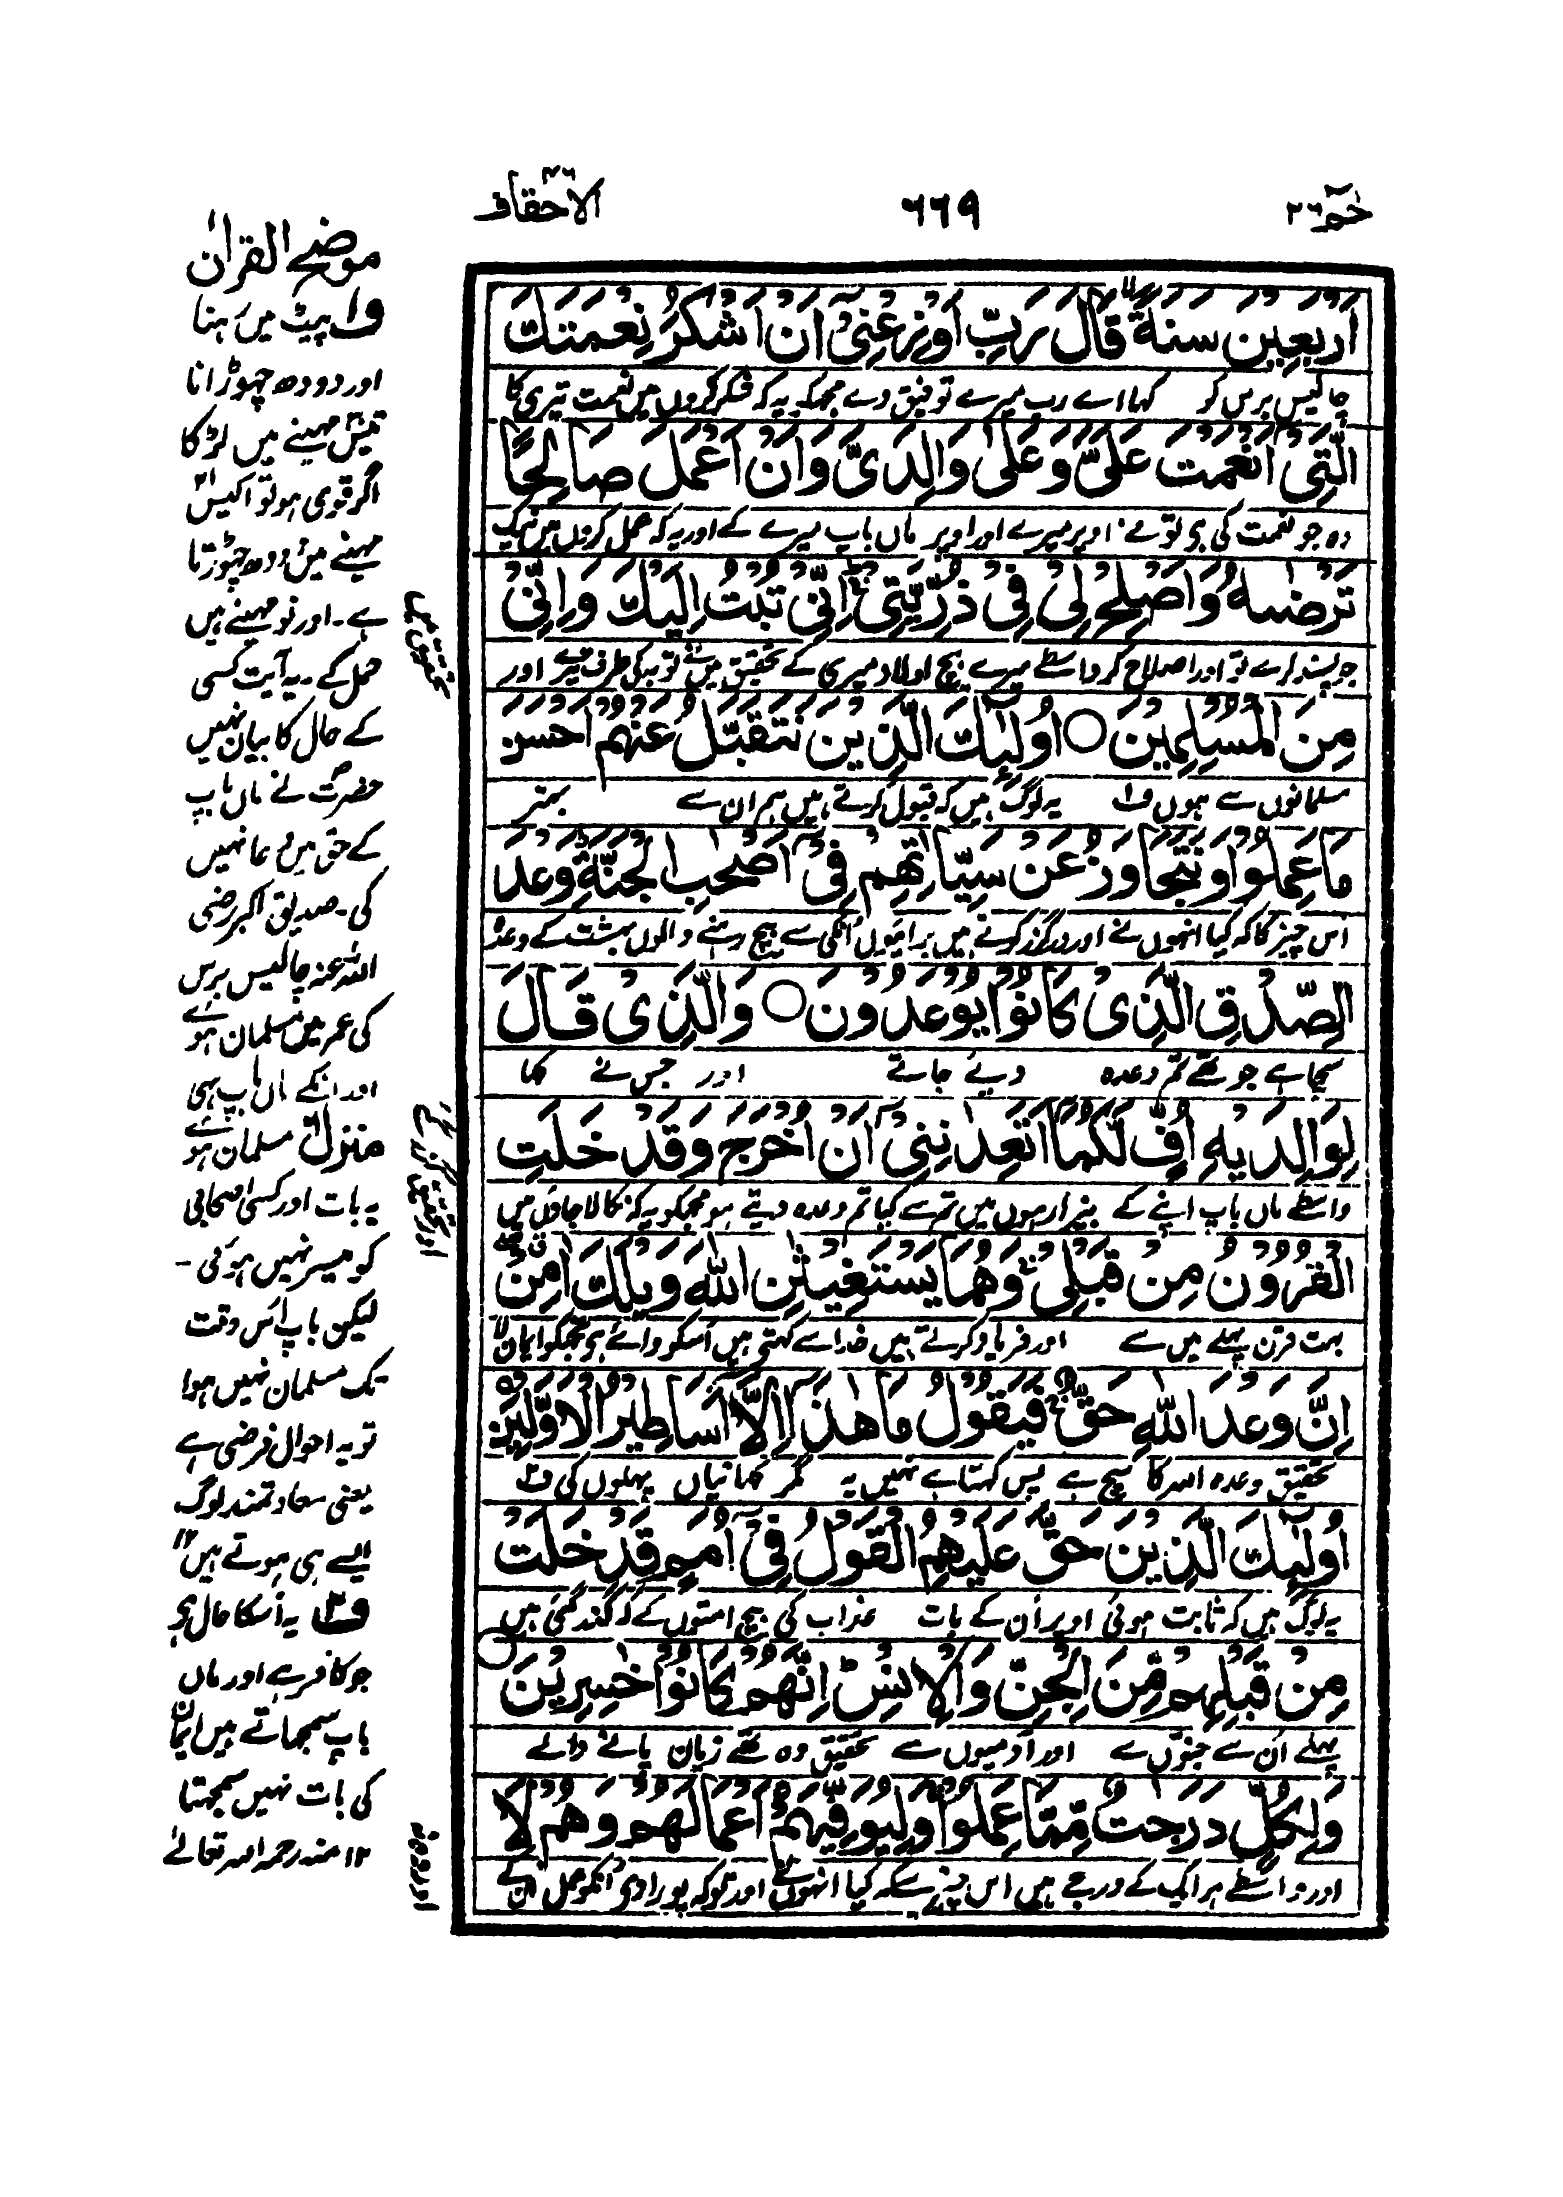 حٰمٓ ٢٦
٦٦٩
الاحقاف ٤٦
اَرْبَعِيْنَ سَنَةً ۙ قَالَ رَبِّ اَوْزِعْنِيْٓ اَنْ اَشْكُرَ نِعْمَتَكَ
چالیس برس کو کہا اے رب میرے توفیق دے مجھکو یہ کہ شکر کروں میں نعمت تیری کا
الَّتِيْٓ اَنْعَمْتَ عَلَيَّ وَعَلٰى وَالِدَيَّ وَاَنْ اَعْمَلَ صَالِحًا
وہ جو نعمت کی ہی تو نے اوپر میرے اور اوپر ماں باپ میرے کے اور یہ کہ عمل کروں میں نیک
تَرْضٰىهُ وَاَصْلِحْ لِيْ فِيْ ذُرِّيَّتِيْ ۚ اِنِّيْ تُبْتُ اِلَيْكَ وَاِنِّيْ
جو پسند کرے تو اور اصلاح کر واسطے میرے بیچ اولاد میری کے تحقیق میں نے توبہ کی طرف تیرے اور
تحقیق میں
مِنَ الْمُسْلِمِيْنَ ○ اُولٰٓئِكَ الَّذِيْنَ نَتَقَبَّلُ عَنْهُمْ اَحْسَنَ
مسلمانوں سے ہوں ف١ یہ لوگ ہیں کہ قبول کرتے ہیں ہم ان سے بہتر
مَا عَمِلُوْا وَنَتَجَاوَزُ عَنْ سَيِّاٰتِهِمْ فِيْٓ اَصْحٰبِ الْجَنَّةِ ۭ وَعْدَ
اس چیز کا کہ کیا انہوں نے اور درگزر کرتے ہیں برائیوں انکی سے بیچ رہنے والوں بہشت کے وعدہ
الصِّدْقِ الَّذِيْ كَانُوْا يُوْعَدُوْنَ ○ وَالَّذِيْ قَالَ
سچا ہے جو تھے تم وعدہ دیے جاتے اور جس نے کہا
لِوَالِدَيْهِ اُفٍّ لَّكُمَآ اَتَعِدٰنِنِيْٓ اَنْ اُخْرَجَ وَقَدْ خَلَتِ
واسطے ماں باپ اپنے کے بیزار ہوں میں تم سے کیا تم وعدہ دیتے ہو مجھکو یہ کہ نکالا جاؤں میں
اور تحقیق گزر گئے
الْقُرُوْنُ مِنْ قَبْلِيْ ۚ وَهُمَا يَسْتَغِيْثٰنِ اللّٰهَ وَيْلَكَ اٰمِنْ
بہت قرن پہلے میں سے اور فریاد کرتے ہیں خدا سے کہتے ہیں اسکو وائے ہی تجھکو ایمان لا
اِنَّ وَعْدَ اللّٰهِ حَقٌّ ۚ فَيَقُوْلُ مَا هٰذَآ اِلَّآ اَسَاطِيْرُ الْاَوَّلِيْنَ
تحقیق وعدہ اللہ کا سچ ہے پس کہتا ہے نہیں یہ مگر کہانیاں پہلوں کی ف٢
اُولٰٓئِكَ الَّذِيْنَ حَقَّ عَلَيْهِمُ الْقَوْلُ فِيْٓ اُمَمٍ قَدْ خَلَتْ
یہ لوگ ہیں کہ ثابت ہوئی اوپر ان کے بات عذاب کی بیچ امتوں کے کہ گذر گئی ہیں
مِنْ قَبْلِهِمْ مِّنَ الْجِنِّ وَالْاِنْسِ ۭ اِنَّهُمْ كَانُوْا خٰسِرِيْنَ ○
پہلے ان سے جنوں سے اور آدمیوں سے تحقیق وہ تھے زیان پانے والے
وَلِكُلٍّ دَرَجٰتٌ مِّمَّا عَمِلُوْا ۚ وَلِيُوَفِّيَهُمْ اَعْمَالَهُمْ وَهُمْ لَا
اور واسطے ہر ایک کے درجے ہیں اس چیز سے کہ کیا انہوں نے اور توکہ پورا دی انکو عمل ان کے
اور وہ نہ
موضح القرآن
ف١ پیٹ میں رہنا
اور دودھ چھوڑانا
تیس مہینے میں لڑکا
اگر قوی ہو تو اکیس
مہینے میں دودھ چھوڑتا
ہے۔ اور نو مہینے ہیں
حمل کے۔ یہ آیت کسی
کے حال کا بیان نہیں
حضرت نے ماں باپ
کے حق میں دعا نہیں
کی۔ صدیق اکبر رضی
اللہ عنہ چالیس برس
کی عمر میں مسلمان ہوئے
اور انکے ماں باپ بھی
منزل مسلمان ہوئے
یہ بات اور کسی صحابی
کو میسر نہیں ہوئی۔
لیکن باپ اس وقت
تک مسلمان نہیں ہوا
تو یہ احوال فرضی ہے
یعنی سعادتمند لوگ
ایسے ہی ہوتے ہیں ١٢
ف٢ یہ اسکا حال ہی
جو کافر ہے اور ماں
باپ سمجھاتے ہیں ایمان
کی بات نہیں سمجھتا
١٢ منہ رحمہ اللہ تعالےٰ